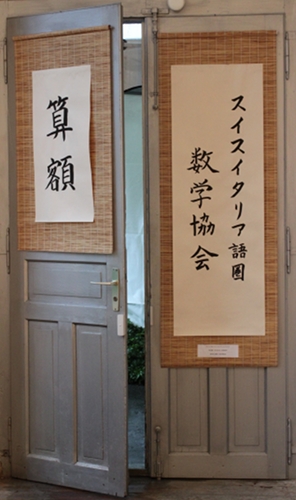 スイスイタリア語圏
数学協会
算額